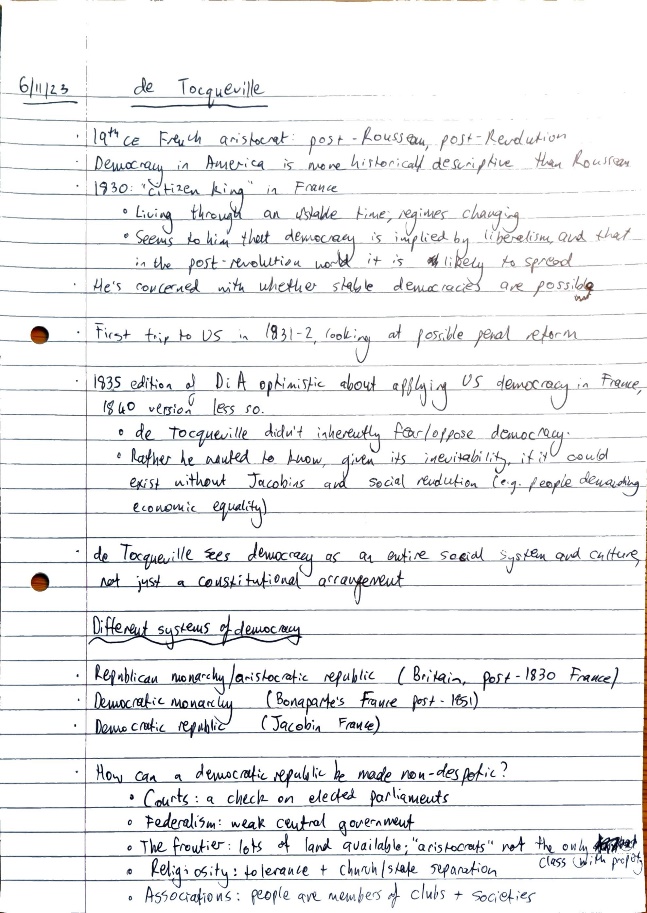 6/11/23 de Tocqueville
· 19th ce French aristocrat: post-Rousseau, post-Revolution
· Democracy in America is more historical/descriptive than Rousseau
· 1830: "citizen king" in France
• Living through an ustable time; regimes changing
• Seems to him that democracy is implied by liberalism, and that
in the post-revolution world it is likely to spread
· He's concerned with whether stable democracies are possible
· First trip to US in 1831-2, looking at possible penal reform
· 1835 edition of DiA optimistic about applying US democracy in France,
1840 version less so.
• de Tocqueville didn't inherently fear/oppose democracy.
• Rather he wanted to know, given its inevitability, if it could
exist without Jacobins and social revolution (e.g. people demanding
economic equality)
· de Tocqueville sees democracy as an entire social system and culture,
not just a constitutional arrangement
Different systems of democracy
· Republican monarchy/aristocratic republic (Britain, post-1830 France)
· Democratic monarchy (Bonaparte's France post-1851)
· Democratic republic (Jacobin France)
· How can a democratic republic be made non-despotic?
• Courts: a check on elected parliaments
• Federalism: weak central government
• The frontier: lots of land available; "aristocrats" not the only
class with property
• Religiosity: tolerance + church/state separation
• Associations: people are members of clubs + societies